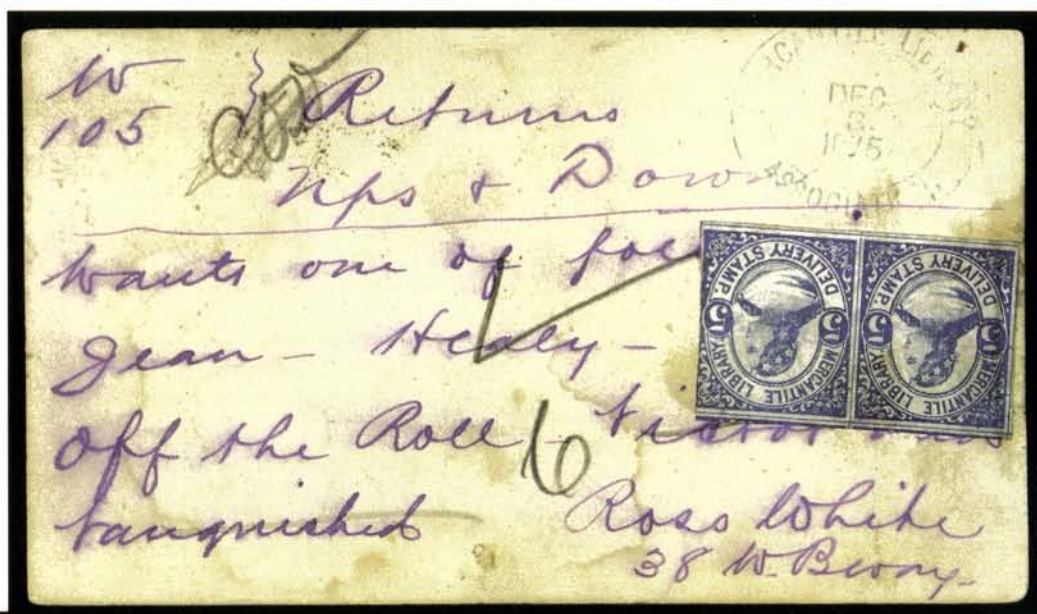 W
105 } Returns
Ups & Down
MERCANTILE LIBRARY
DEC
8.
1875
ASSOCIATION
Wants one of
Jean - Healy -
Off the Roll - Victor and
Vanquished
6
Ross White
38 W. Bway -
5 MERCANTILE LIBRARY 5 DELIVERY STAMP.
5 MERCANTILE LIBRARY 5 DELIVERY STAMP.